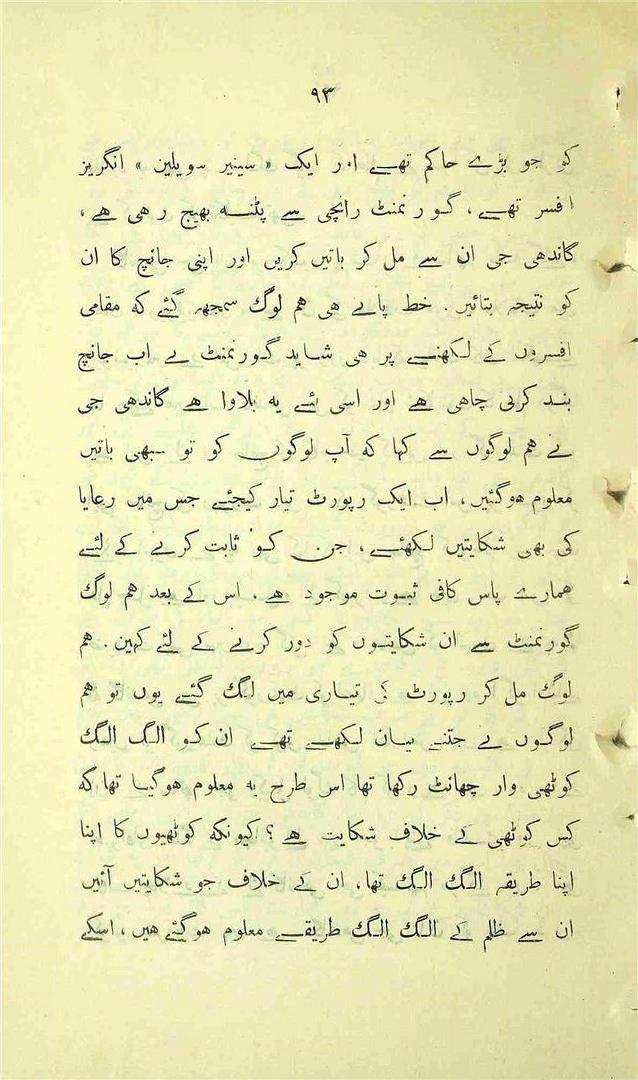 ۹۳
کو جو بڑے حاکم تھے اور ایک « سینیر سویلین » انگریز
افسر تھے، گورنمنٹ رانچی سے پٹنہ بھیج رھی ھے ،
گاندھی جی ان سے مل کر باتیں کریں اور اپنی جانچ کا ان
کو نتیجہ بتائیں . خط پاتے ھی ھم لوگ سمجھ گئے کہ مقامی
افسروں کے لکھنے پر ھی شاید گورنمنٹ نے اب جانچ
بند کرنی چاھی ھے اور اسی لئے یہ بلاوا ھے گاندھی جی
نے ھم لوگوں سے کہا کہ آپ لوگوں کو تو سبھی باتیں
معلوم ھوگئیں، اب ایک رپورٹ تیار کیجئے جس میں رعایا
کی بھی شکایتیں لکھئے ، جن کو ثابت کرنے کے لئے
ھمارے پاس کافی ثبوت موجود ھے ، اس کے بعد ھم لوگ
گورنمنٹ سے ان شکایتوں کو دور کرنے کے لئے کہیں . ھم
لوگ مل کر رپورٹ کی تیاری میں لگ گئے یوں تو ھم
لوگوں نے جتنے بیان لکھے تھے ان کو الگ الگ
کوٹھی وار چھانٹ رکھا تھا اس طرح یہ معلوم ھوگیا تھا کہ
کس کوٹھی کے خلاف شکایت ھے ؟ کیونکہ کوٹھیوں کا اپنا
اپنا طریقہ الگ الگ تھا، ان کے خلاف جو شکایتیں آئیں
ان سے ظلم کے الگ الگ طریقے معلوم ھوگئے ھیں ، اسکے